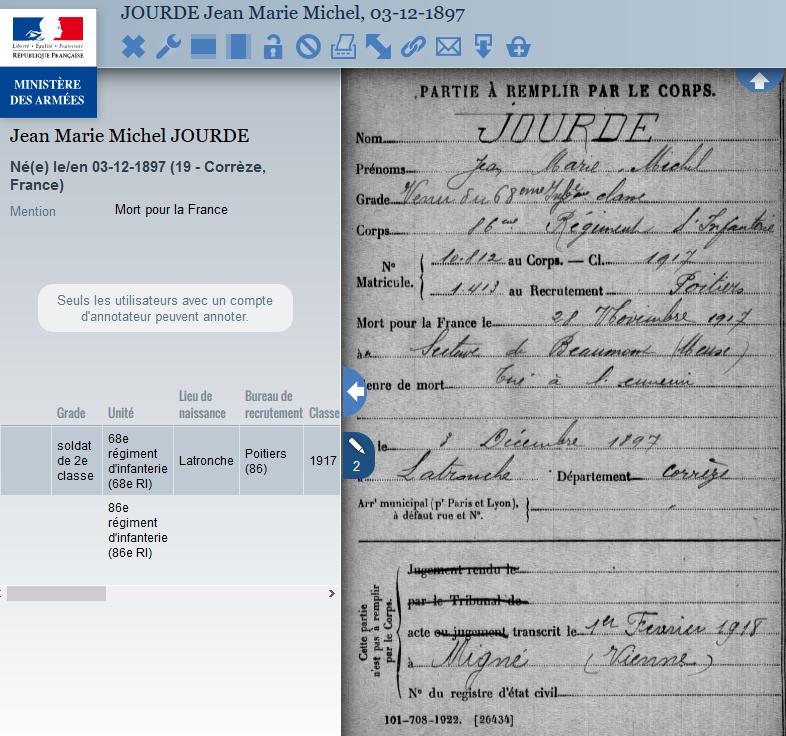 JOURDE Jean Marie Michel, 03-12-1897
Liberté • Égalité • Fraternité
RÉPUBLIQUE FRANÇAISE
MINISTÈRE
DES ARMÉES
Jean Marie Michel JOURDE
Né(e) le/en 03-12-1897 (19 - Corrèze,
France)
Mention Mort pour la France
Seuls les utilisateurs avec un compte
d'annotateur peuvent annoter.
Grade Unité Lieu de naissance Bureau de recrutement Classe
soldat de 2e classe 68e régiment d'infanterie (68e RI) Latronche Poitiers (86) 1917
86e régiment d'infanterie (86e RI)
2
PARTIE À REMPLIR PAR LE CORPS.
Nom JOURDE
Prénoms Jean Marie Michel
Grade Venu du 68eme Infrie classe
Corps 86me Régiment d'Infanterie
N° Matricule. 10.812 au Corps. — Cl. 1917
1.413 au Recrutement Poitiers
Mort pour la France le 28 Novembre 1917
à Secteur de Beaumont (Meuse)
enre de mort Tué à l'ennemi
le 3 Décembre 1897
à Latronche Département Corrèze
Arrt municipal (pr Paris et Lyon),
à défaut rue et N°.
Cette partie
n'est pas à remplir
par le Corps.
Jugement rendu le
par le Tribunal de
acte ou jugement transcrit le 1er Fevrier 1918
à Migné (Vienne)
N° du registre d'état civil
101-708-1922. [26434]